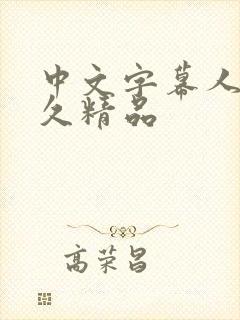 中文字幕人
久精品
高荣昌